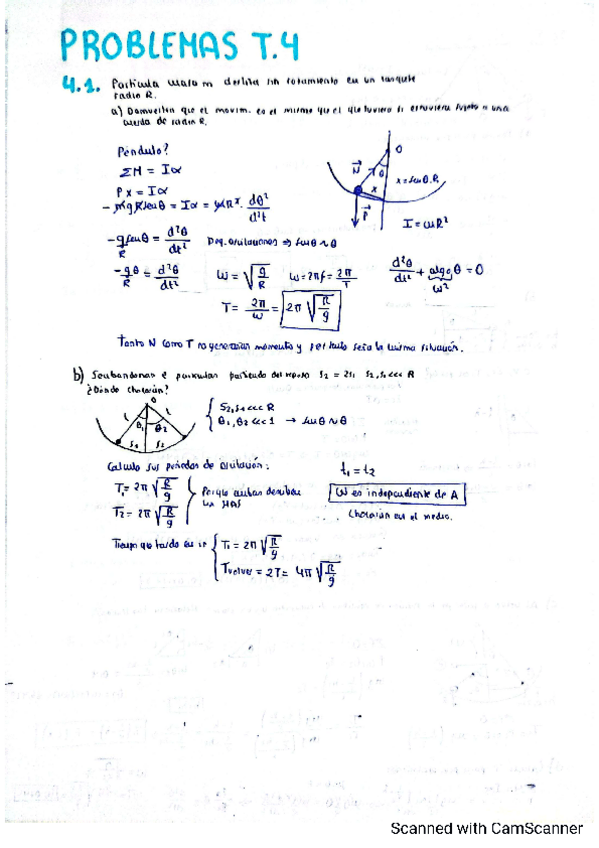 PROBLEMAS T.4
4.1. Partícula masa m desliza sin rozamiento en un casquete
radio R.
a) Demuestra que el movim. es el mismo que el que tuviera si estuviera sujeto a una
cuerda de radio R.
Péndulo?
ΣM = Iα
P x = Iα
- mgRsenθ = Iα = mR². dθ²/d²t
-g senθ/R = d²θ/dt² Peq. oscilaciones ⇒ senθ ~ θ
-gθ/R = d²θ/dt² ω = √(g/R) ω = 2πf = 2π/T d²θ/dt² + algo θ = 0
ω²
T = 2π/ω = 2π √(R/g)
N θ O
x x = senθ.R
P I = mR²
Tanto N como T no generarían momento y por tanto sería la misma situación.
b) Se abandonan 2 partículas partiendo del reposo S2 = 2S1 S2, S1 <<< R
¿Dónde chocarán?
O
L θ1 θ2 L
S1 S2
S2, S1 <<< R
θ1, θ2 <<< 1 → senθ ~ θ
Calculo sus periodos de oscilación:
T1 = 2π √(R/g) Porque ambas describen
T2 = 2π √(R/g) un MAS
t1 = t2
ω es independiente de A
Chocarán en el medio.
Tiempo que tarda en ir T1 = 2π √(R/g)
Tvolver = 2T = 4π √(R/g)
Scanned with CamScanner